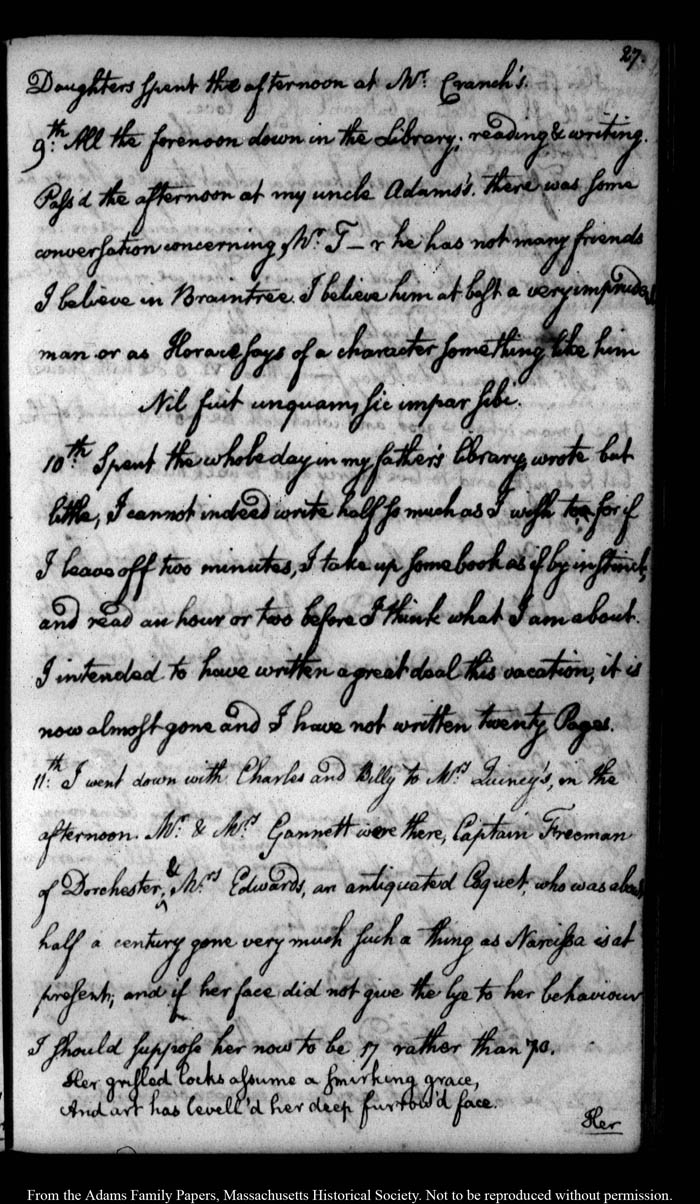 27.
Daughters spent the afternoon at Mr. Cranch's.
9th: All the forenoon down in the Library; reading & writing.
Pass'd the afternoon at my uncle Adams's. there was some
conversation concerning Mr. T—r he has not many friends
I believe in Braintree. I believe him at best a very imprudent
man or as Horace says of a character something like him
Nil fuit unquam, sic impar sibi.
10th: Spent the whole day in my father's library, wrote but
little, I cannot indeed write half so much as I wish to, for if
I leave off two minutes, I take up some book as if by instinct,
and read an hour or two before I think what I am about.
I intended to have written a great deal this vacation, it is
now almost gone and I have not written twenty Pages.
11th: I went down with Charles and Billy to Mrs Quincy's, in the
afternoon. Mr. & Mrs Gannett were there, Captain Freeman
of Dorchester, & Mrs Edwards, an antiquated Coquet, who was about
half a century gone very much such a thing as Narcissa is at
present; and if her face did not give the lye to her behaviour
I should suppose her now to be 17 rather than 70.
Her grisled locks assume a smirking grace,
And art has levell'd her deep furrow'd face.
Her
From the Adams Family Papers, Massachusetts Historical Society. Not to be reproduced without permission.